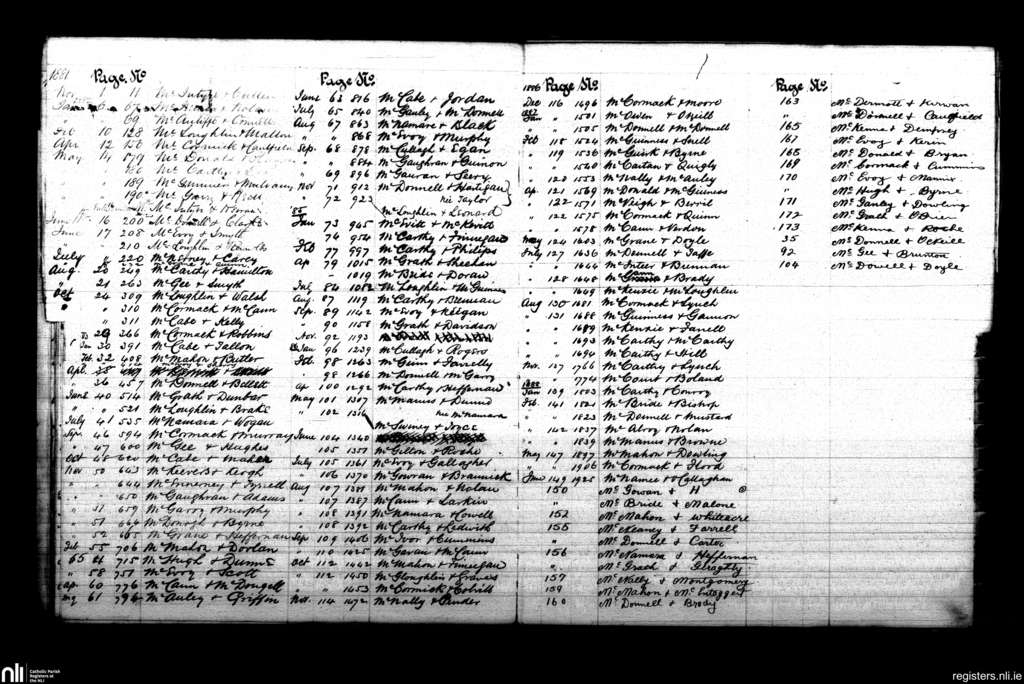 1881 Page No
Nov 1 11 McIntyre + Cullen
69 McAuliffe +
Feb 10 128 McLoughlin + Mallon
Apr 12 150 McCormick + Caulfield
May 14 179 McDonald +
" 189
" 190 McGarry +
16 200 McDonnell + Clarke
June 17 208 McEvoy + Smith
" 210 McLoughlin +
July " 220 McEvoy + Carey
Aug. 20 249 McCardy + Hamilton
" 21 263 McGee + Smyth
Oct 24 309 McLoughlin + Walsh
" 310 McCormack + McCann
" 311 McCabe + Kelly
29 366 McCormack + Robbins
Jan 30 391 McCabe + Fallon
Feb. 32 408 McMahon + Butler
Apl.
" 36 457 McDonnell + Bellett
June 40 514 McGrath + Dunbar
" " 521 McLoughlin + Brake
July 41 535 McNamara + Hogan
Sept 46 594 McCormack + Murray
" 47 600 McGee + Hughes
Oct 48 620 McCabe + Maher
Nov 50 643 McKeever + Keogh
" " 644 McEnerney + Tyrrell
" " 650 McGaughran + Adams
" 51 659 McGarry + Murphy
" 51 664 McDonagh + Byrne
" 52 665 McGrane + Heffernan
Feb 55 706 McMahon + Dorlan
715 McHugh + Dunne
" 58 757 McEvoy + Scott
Ap. 60 776 McCann + McDougall
My 61 796 McAuley + Griffin
Page No.
June 63 816 McCabe + Jordan
July 65 840 McGauley + McDonnell
Aug 67 863 McNamara + Black
" " 868 McEvoy + Murphy
Sep. 68 878 McCullagh + Egan
" " 884 McGaughran + Guinon
" 69 896 McGauran + Seery
Nov 71 912 McDonnell + Hartigan
" 72 923 nee Taylor
85 McLoughlin + Leonard
Jan 73 945 McEvitt + McKevitt
" 74 954 McCarthy + Finnegan
Feb 77 997 McCarthy + Philips
Ap 79 1015 McGrath + Sheehan
1019 McBride + Doran
July 84 1082 McLoughlin + McGuinness
Aug. 87 1119 McCarthy + Brennan
Sep. 89 1142 McEvoy + Kilgan
" 90 1158 McGrath + Davidson
Nov. 92 1193
Jan 96 1239 McCullagh + Rogers
Feb. 98 1263 McGuinn + Farrelly
98 1266 McDonnell + McGarry
Ap 100 1292 McCarthy + Heffernan
May 101 1307 McManus + Dunne
" 102 1316 nee McNamara
McSweeney + Joyce
June 104 1340
105 1357 McGetton + Roche
July 105 1361 McEvoy + Gallagher
" 106 1370 McGowran + Brannick
Aug 107 1381 McMahon + Nolan
" 107 1387 McCann + Larkin
" 108 1391 McNamara + Cowell
" 108 1392 McCarthy + Ledwith
Sep 109 1406 McIvor + Cummins
" 110 1425 McGavan + McCann
Oct 112 1442 McMahon + Finnegan
" 112 1450 McGloughlin + Graves
" " 1453 McCormick + Cahill
Nov. 114 1472 McNally + Pender
1886 Page No.
Dec 116 1496 McCormack + Moore
Jan " 1501 McOwen + O'Neill
" " 1505 McDonnell + McDonnell
Feb 118 1524 McGuinness + Snell
" 119 1536 McGuirk + Byrne
" 1540 McCartan + Quigly
" 120 1553 McNally + McAuley
Ap. 121 1569 McDonald + McGuiness
" 122 1571 McVeigh + Birril
" 122 1575 McCormack + Quinn
" " 1578 McCann + Verdon
May 124 1603 McGrane + Doyle
July 127 1636 McDonnell + Taffe
" " 1644 McInteer + Brennan
" 128 1648 + Brady
" " 1649 McKenzie + McLoughlin
Aug 130 1681 McCormack + Lynch
" 131 1688 McGuinness + Gannon
" " 1689 McKenzie + Farrell
" " 1693 McCarthy + McCarthy
" " 1694 McCarthy + Hill
Nov. 137 1766 McCarthy + Lynch
" " 1774 McCourt + Boland
1888
Jan 139 1803 McCarthy + Conroy
Feb. 141 1822 McBride + Bishop
" " 1823 McDonnell + Mustard
" 142 1837 McAlroy + Nolan
" " 1839 McManus + Browne
May 147 1897 McMahon + Dowling
" " 1906 McCormack + Flood
June 149 1925 McNamee + Callaghan
150 McGowan + H
" McBride + Malone
152 McMahon + Whiteacre
155 McKeaney + Farrell
" McDonnell + Carter
156 McNamara + Heffernan
" McGrath + Geraghty
157 McNally + Montgomery
159 McMahon + McEntaggert
160 McDonnell + Brody
Page No.
163 McDermott + Kirwan
" McDonnell + Caulfield
165 McKenna + Dempsey
161 McEvoy + Kerin
168 McDonald + Bryan
169 McCormack + Cummins
170 McEvoy + Mannix
" McHugh + Byrne
171 McGanley + Dowling
172 McGrath + O'Brien
173 McKenna + Roche
35 McDonnell + O'Neill
92 McGee + Brunton
104 McDowell + Doyle
nli
Catholic Parish
Registers at
the NLI
registers.nli.ie